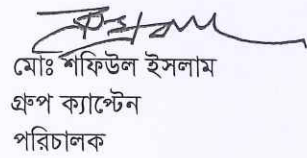 মোঃ শফিউল ইসলাম
গ্রুপ ক্যাপ্টেন
পরিচালক